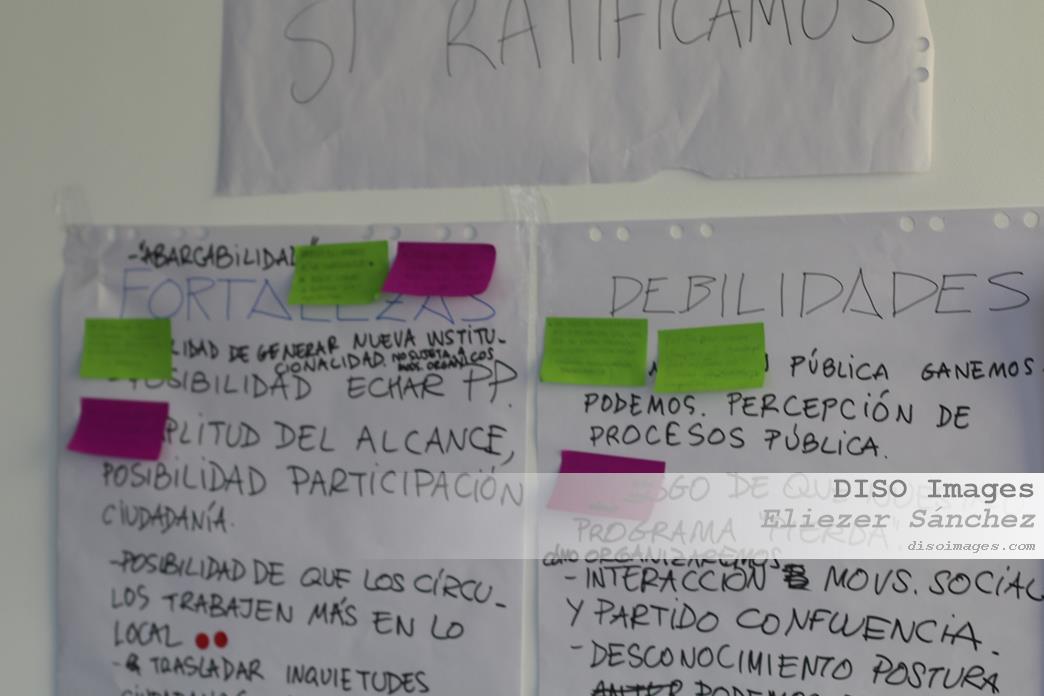 SI RATIFICAMOS
-"ABARCABILIDAD"
FORTALEZAS
LIDAD DE GENERAR NUEVA INSTITU-
CIONALIDAD. NO SUJETA A
MOS. ORGÁNICOS
- POSIBILIDAD ECHAR PP.
PLITUD DEL ALCANCE,
POSIBILIDAD PARTICIPACIÓN
CIUDADANÍA.
-POSIBILIDAD DE QUE LOS CÍRCU-
LOS TRABAJEN MÁS EN LO
LOCAL
- TRASLADAR INQUIETUDES
DEBILIDADES
PÚBLICA GANEMOS
PODEMOS. PERCEPCIÓN DE
PROCESOS PÚBLICA.
SGO DE QUE
PROGRAMA "PIERDA"
CÓMO ORGANIZAREMOS
- INTERACCIÓN MOVS. SOCIAL
Y PARTIDO CONFLUENCIA.
- DESCONOCIMIENTO POSTURA
PODEMOS
DISO Images
Eliezer Sánchez
disoimages.com